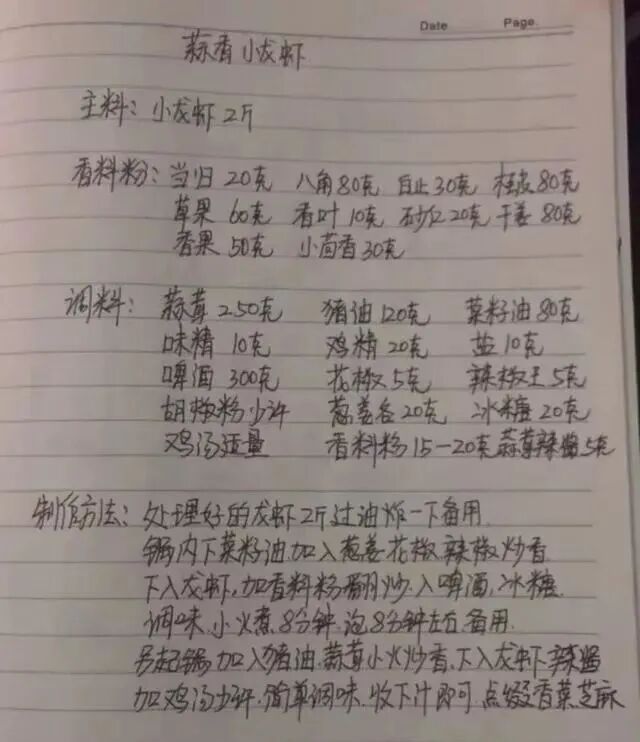 Date Page.
蒜香小龙虾
主料：小龙虾2斤
香料粉：当归20克 八角80克 白止30克 桂皮80克
草果60克 香叶10克 砂仁20克 干姜80克
香果50克 小茴香30克
调料：蒜茸250克 猪油120克 菜籽油80克
味精10克 鸡精20克 盐10克
啤酒300克 花椒5克 辣椒王5克
胡椒粉少许 葱姜各20克 冰糖20克
鸡汤适量 香料粉15—20克 蒜蓉辣酱5克
制作方法：处理好的龙虾2斤过油炸一下备用
锅内下菜籽油加入葱姜花椒辣椒炒香
下入龙虾，加香料粉翻炒.入啤酒.冰糖
调味.小火煮8分钟.泡8分钟左右备用.
另起锅加入猪油.蒜茸小火炒香.下入龙虾.辣酱
加鸡汤少许.简单调味.收下汁即可.点缀香菜芝麻